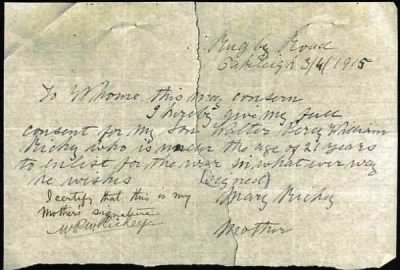 Rugby Road
Oakleigh 3/4/1915
To Whome this may concern
I hereby give my full
consent for my Son Walter Percy William
Richey who is under the age of 21 years
to enlist for the war in what ever way
he wishes (signed)
I certify that this is my
Mothers signature
Mary Richey
WPWRichey
Mother